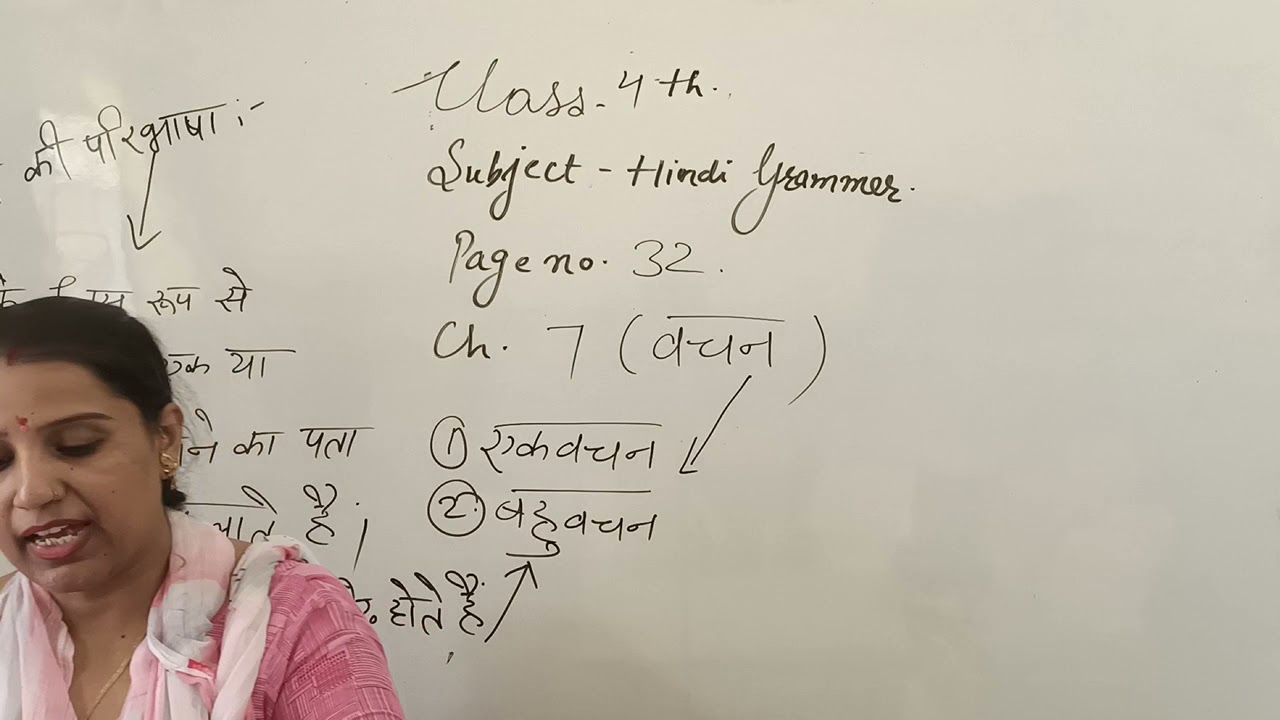 की परिभाषा :-
रूप से
एक या
का पता
जाते हैं।
होते हैं
Class. 4th.
Subject - Hindi Grammer.
Page no. 32.
Ch. 7 (वचन)
① एकवचन
② बहुवचन